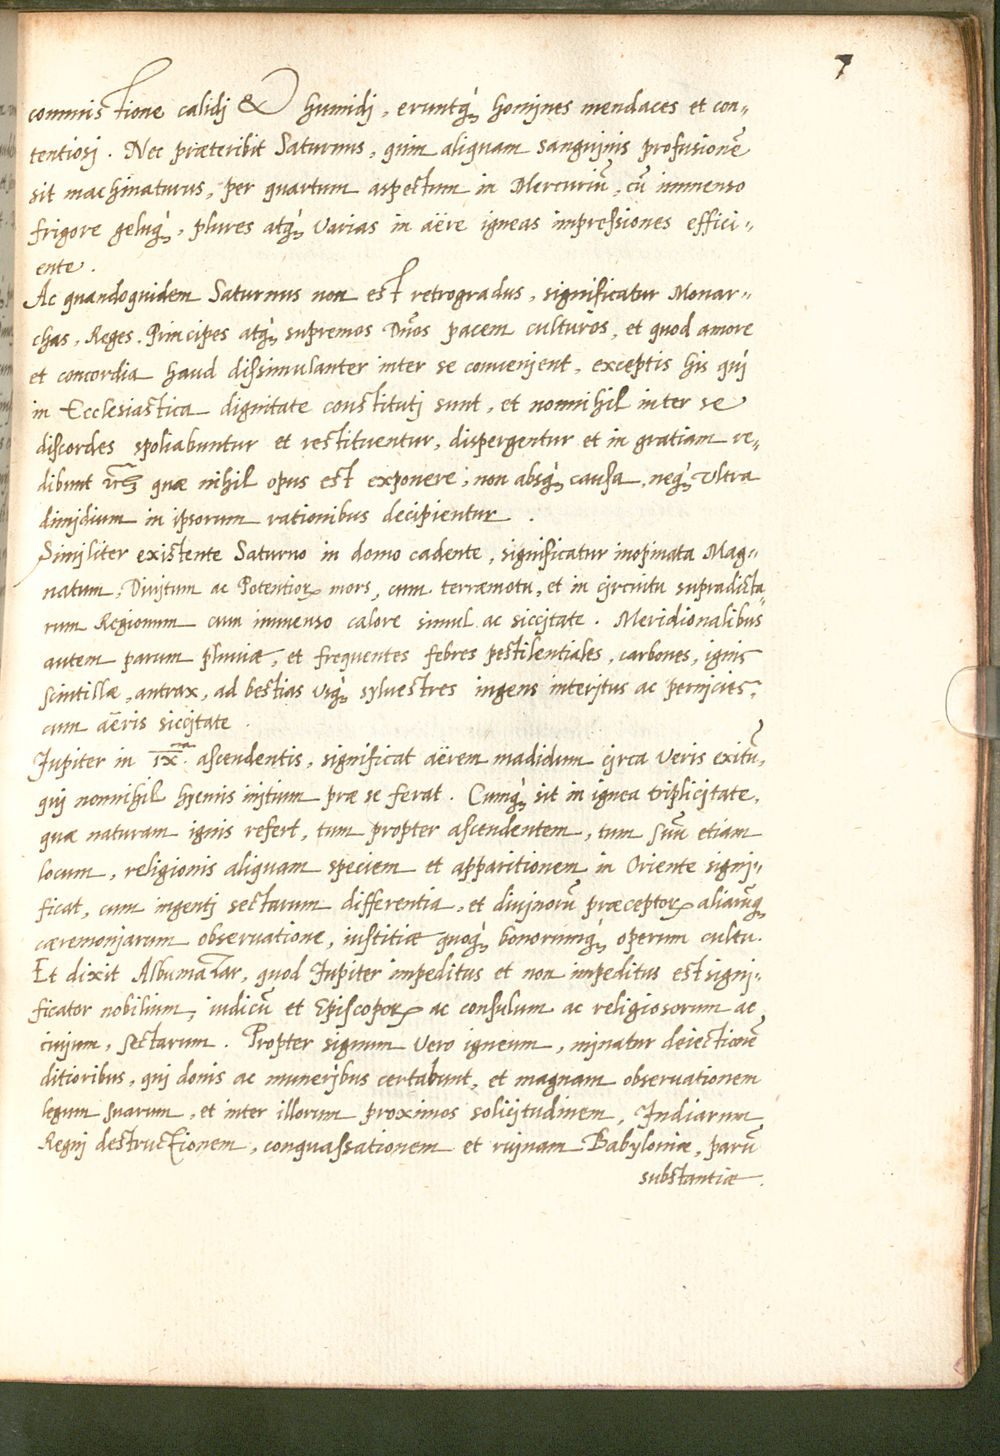 7
commistione calidj & humidj, eruntq́ꝫ homines mendaces et con„
tentiosj. Nec præteribit Saturnus, quin aliquam sanguinis profusionē
sit machinaturus, per quartum aspectum in Mercuriū, cū immenso
frigore geluq́ꝫ, plures atq́ꝫ varias in aëre igneas impreſsiones effici„
ente.
Ac quandoquidem Saturnus non est retrogradus, significatur Monar„
chas, Reges, Principes atq́ꝫ supremos Dn̄os pacem culturos, et quod amore
et concordia haud diſsimulanter inter se convenient, exceptis his quj
in Ecclesiastica dignitate constitutj sunt, et nonnihil inter se
diſcordes spoliabuntur et restituentur, dispergentur et in gratiam re„
dibunt quæ nihil opus est exponere, non absq́ꝫ cauſa, neq́ꝫ vltra
dimidium in ipsorum rationibus decipientur.
Similiter existente Saturno in domo cadente, significatur inopinata Mag„
natum, Divitum ac Potentioꝝ mors, cum terræmotu, et in circuitu supradicta„
rum Regionum cum immenso calore simul ac siccitate. Meridionalibus
autem parum pluviæ, et frequentes febres pestilentiales, carbones, ignis
ſcintillæ, antrax, ad bestias vsq́ꝫ sylvestres ingens interitus ac pernicies,
cum aëris siccitate.
Jupiter in ıx.ª aſcendentis, significat aërem madidum circa veris exitū,
quj nonnihil hyemis initium præ se ferat. Cumq́ꝫ sit in ignea triplicitate,
quæ naturam ignis refert, tum propter aſcendentem, tum ſuū etiam
locum, religionis aliquam speciem et apparitionem in Oriente signi„
ficat, cum ingentj sectarum differentia, et divinorū præceptoꝝ aliarūqꝫ
cæremoniarum obseruatione, iustitiæ quoq́ꝫ bonorumq́ꝫ operum cultu.
Et dixit Albumazar, quod Jupiter impeditus et non impeditus est signi„
ficator nobilium, iudicū et Episcopoꝝ ac conſulum ac religiosorum ac
ciuium, sectarum. Propter signum vero igneum, minatur deiectionē
ditioribus, qui donis ac muneribus certabunt, et magnam obseruationem
legum ſuarum, et inter illorum proximos solicitudinem, Indiarum
Regnj destructionem, conquaſsationem et ruinam Babyloniæ, parū
substantiæ.